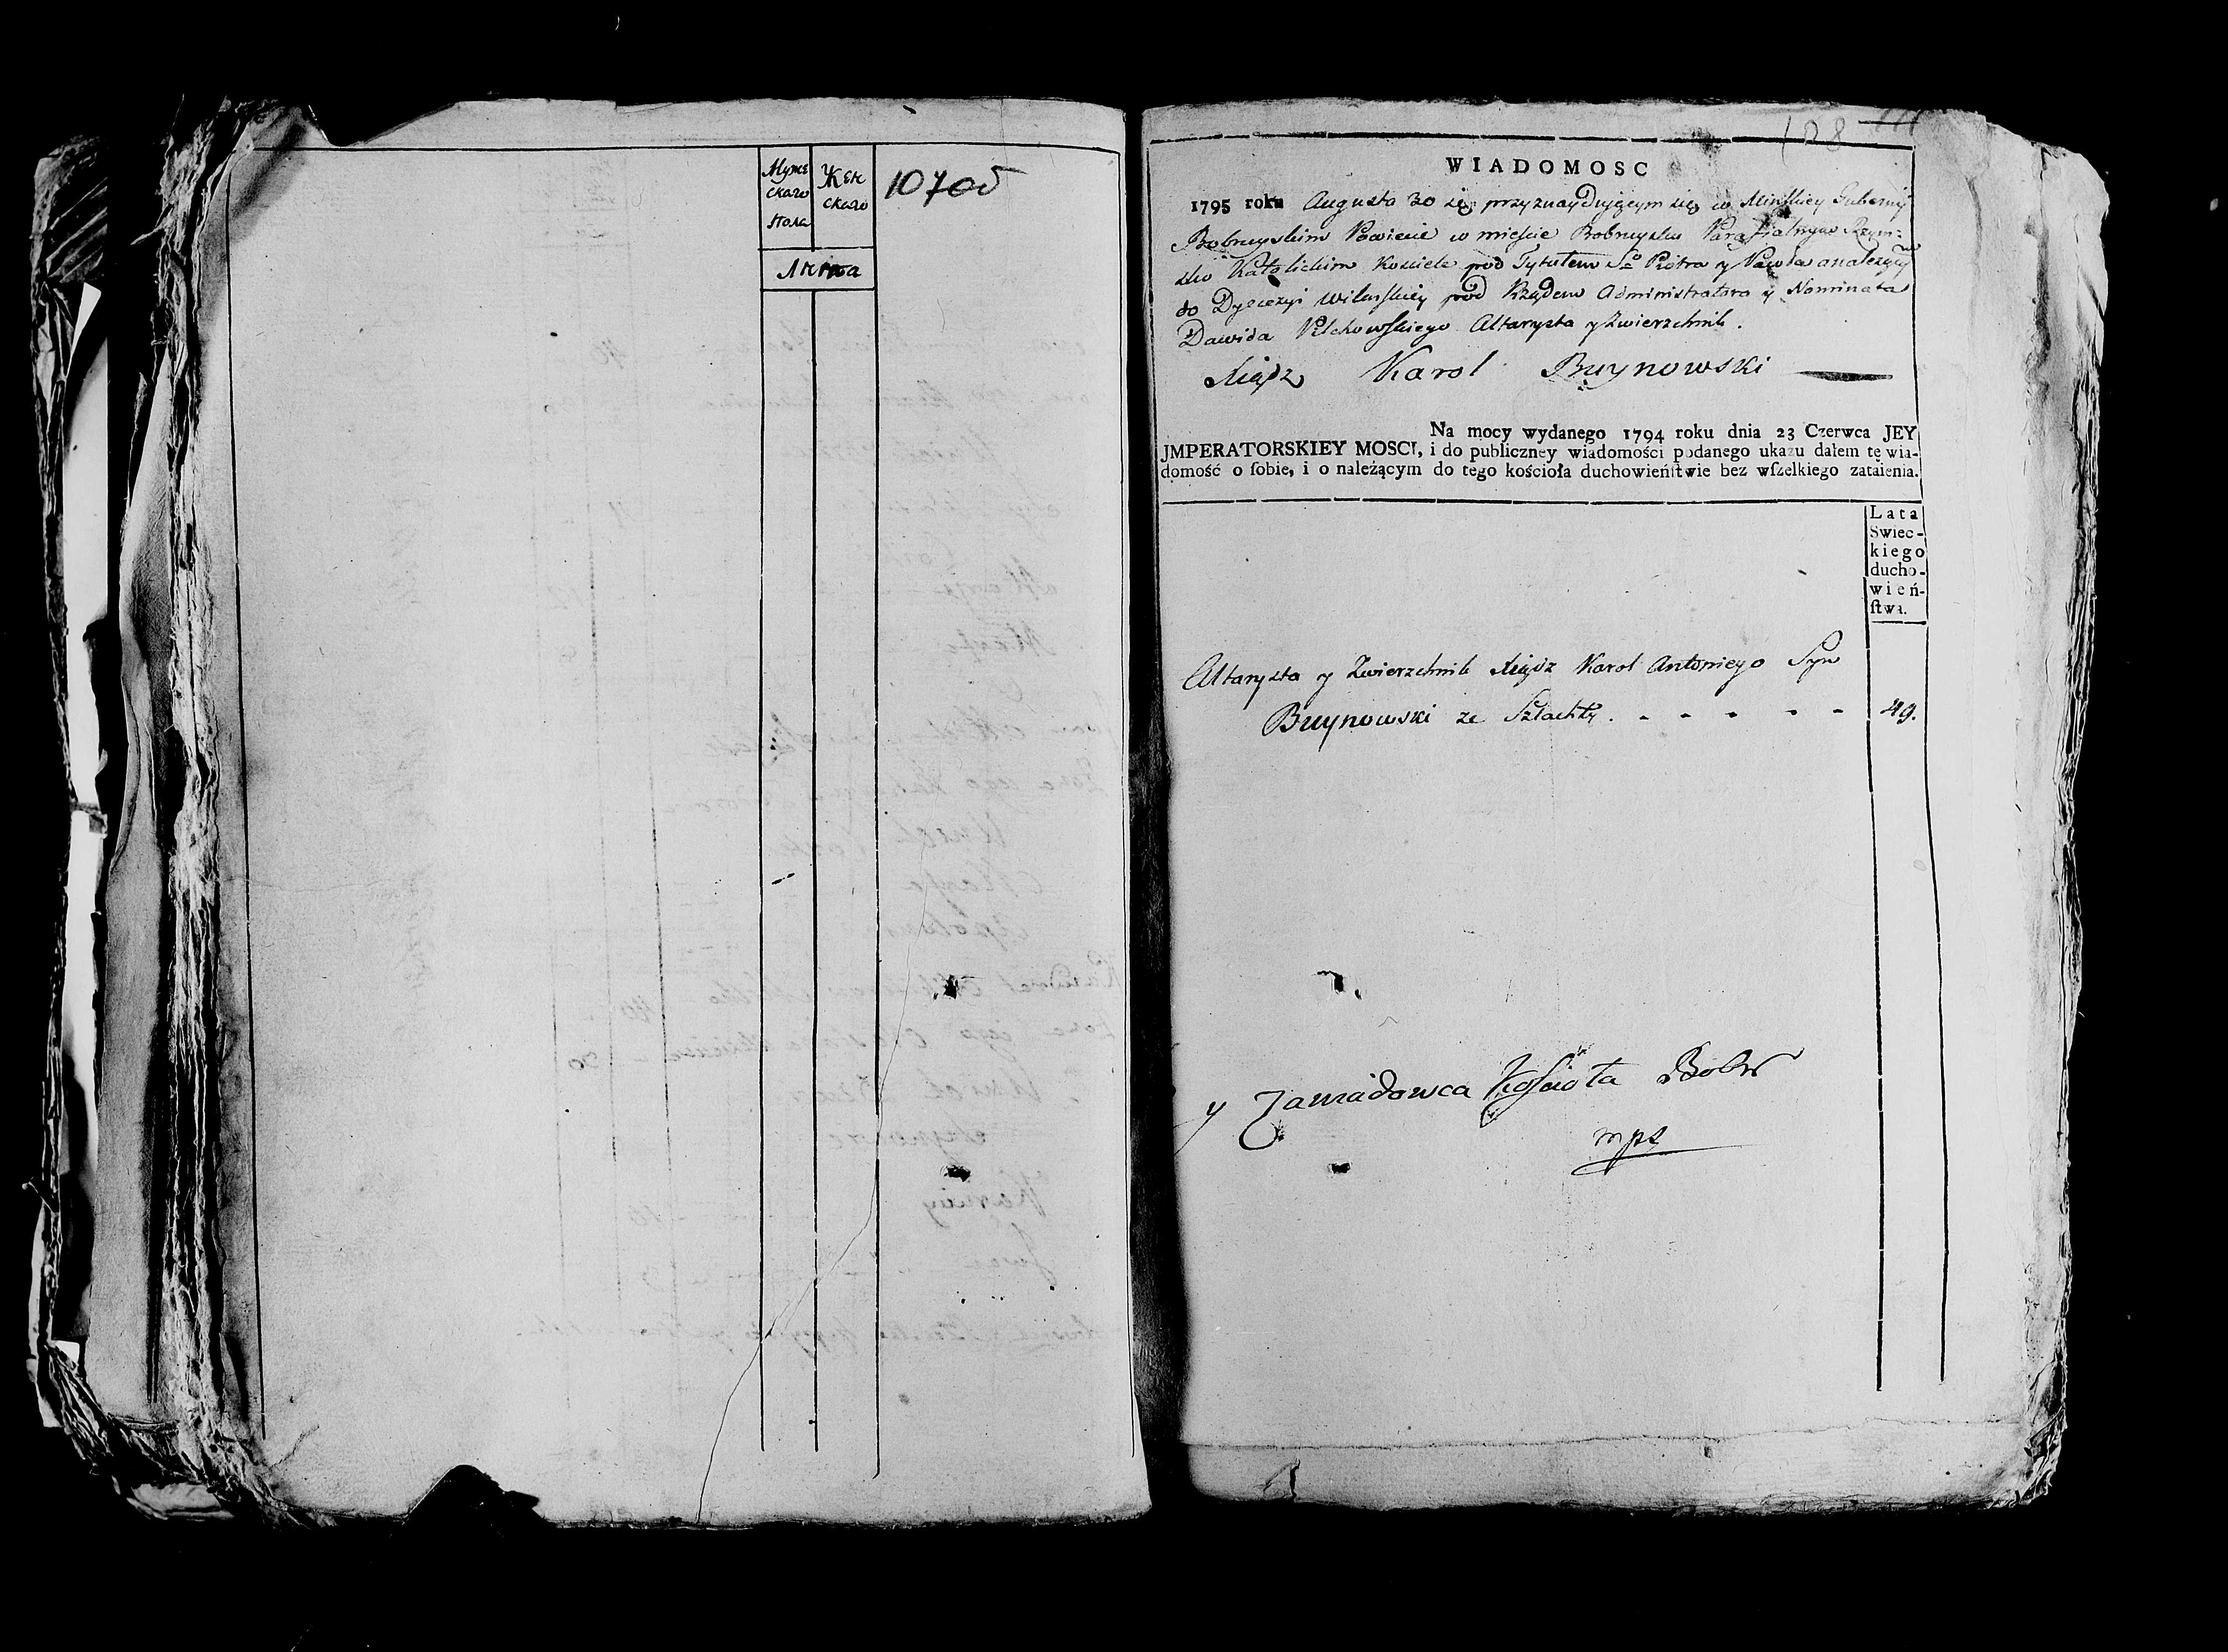 Муже
скаго
пола
Жен
скаго
Лѣта
188
WIADOMOSC
1795 roku Augusta 30 przy znaydującym się w Mińskiey Guberny
Bobruyskim Powiecie w mieście Bobruysku Parafialnym Rzym:
sko Katolickim Kościele pod Tytułem So Piotra y Pawła a należący
do Dyecezyi Wilenskiey pod Rządem Administratora y Nominata
Dawida Pilchowskiego Altarysta y Zwierzchnik.
Xiądz Karol Buynowski
Na mocy wydanego 1794 roku dnia 23 Czerwca JEY
JMPERATORSKIEY MOSCI, i do publiczney wiadomości podanego ukazu dałem tę wia-
domość o ſobie, i o należącym do tego kościoła duchowieńſtwie bez wſzelkiego zataienia.
Lata
Swiec-
kiego
ducho-
wień-
ſtwa.
Altarysta y Zwierzchnik Xiądz Karol Antoniego Syn
Buynowski ze Szlachty. - - - - - 49.
y Zawiadowca Kościoła Bobr
mps